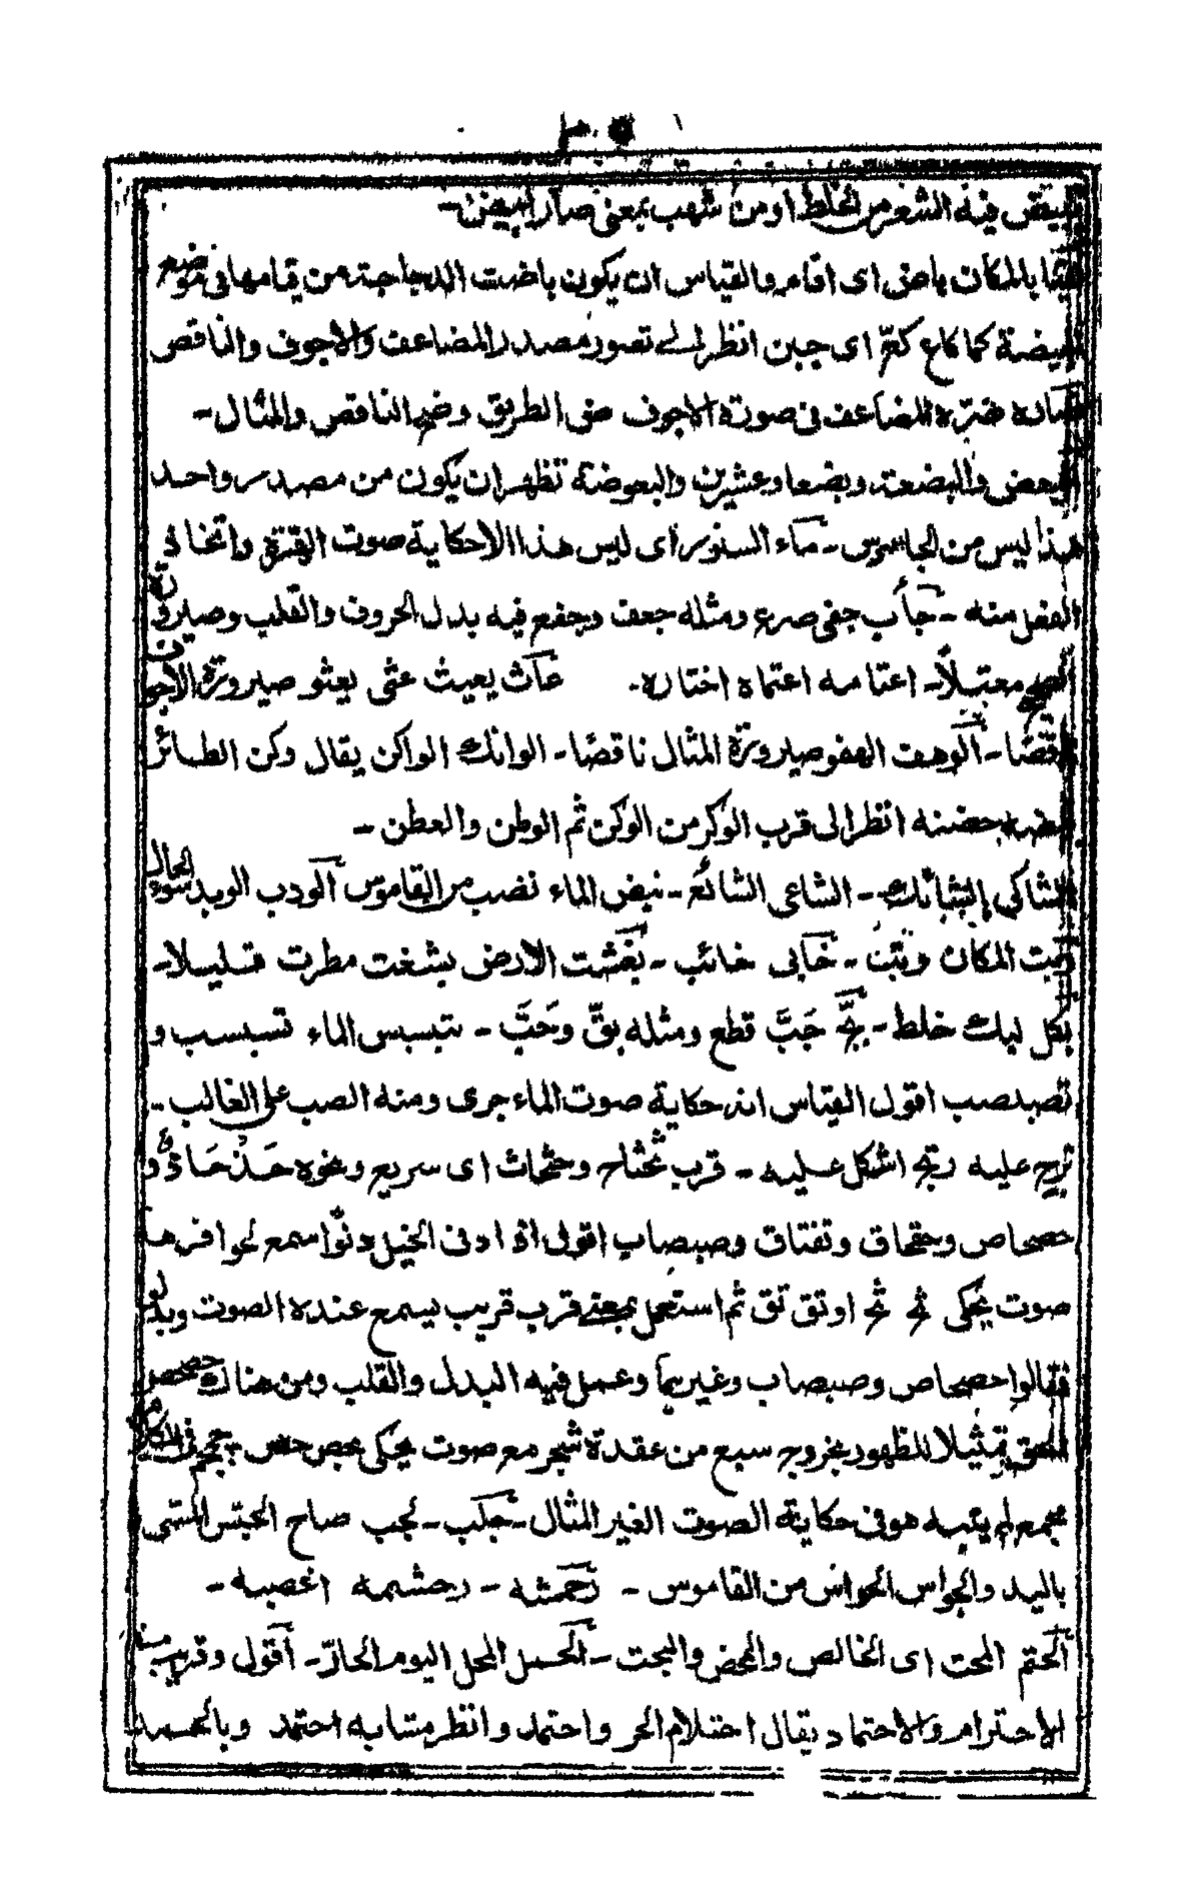 فيه الشعر من الخلط او من شهب بمعنى صار ابيض-
بالمكان باض اى اقام والقياس ان يكون باضت الدجاجة من قيامها فى موضع
البيضة كما كاع كعّ اى جبن انظر الى تصور مصدر المضاعف والاجوف والناقص
ضرّه المضاعف فى صورة الاجوف ضى الطريق وضم الناقص والمثال-
البعض والبضعة وبضعا وعشرين والبعوضة تظهر ان يكون من مصدر واحد
هذا ليس من الجاسوس- ماء السنور اى ليس هذا الا حكاية صوت الهرة واتخاذ
الفعل منه- جأب جفى صرع ومثله جعف وجفع فيه بدل الحروف والقلب وصيرورة
معتلاً- اعتامه اعتماه اختاره. عاث يعيث عثى يعثو صيرورة الاجوف
ناقصًا- الوهف الهفو صيرورة المثال ناقصًا- الوانك الواكن يقال وكن الطائر
حضنه انظر الى قرب الوكر من الوكن ثم الوطن والعطن-
الشاكى الشائك- الشاعى الشائع- نبض الماء نضب من القاموس الودب الوبد سوء الحال
المكان وتبن- خابى خائب- بغشت الارض بشغت مطرت قليلا-
بكل لبك خلط- بجّ جَبَّ قطع ومثله بقّ وحَبَّ- تبسبس الماء تسبسب و
تصبصب اقول القياس انه حكاية صوت الماء جرى ومنه الصب على الغالب-
عليه رتج اشكل عليه- قرب حثحاث اى سريع ونحوه حذحاذ و
حصحاص وحقحاق وتقتاق وصبصاب اقول اذا دنى الخيل دنوّا سمع لحوافرها
صوت يحكى او تق تق ثم استعمل بمعنى قرب قريب يسمع عنده الصوت وبدلو
فقالوا حصحاص وصبصاب وغيرهما وعمل فيه البدل والقلب ومن هناك حصحص
الحق تمثيلا للظهور بخروج سبع من عقدة شجر مع صوت يحكى
لم يثبه هو فى حكاية الصوت الغير المثال- جلب- لجب صاح المسّى
باليد والجواس الحواس من القاموس- رحمشه- رحشمه اغضبه-
الحتم المحت اى الخالص والمحض والبحت- الحمل المحل اليوم الحارّ- أقول وقريب منه
الاحترام والاحتماد يقال احتدام الحر واحتمد وانظر متشابه احتمد